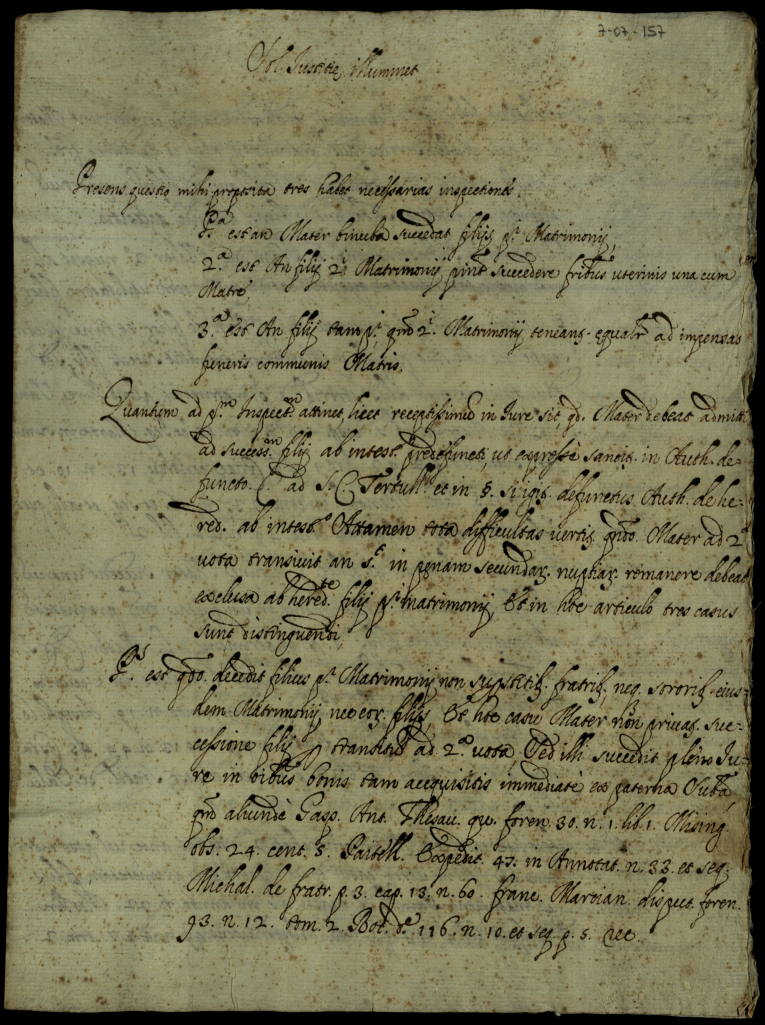 7-07-157
Sol Justitie illuminet
Presens questio mihi proposita tres habet necessarias inspectiones.
P.ª est an Mater binuba succedat filijs p.i Matrimonij,
2.ª est An filij 2.i Matrimonij succedere fribus uterinis una cum
Matre,
3.ª est An filij tam p.i, qm 2.i Matrimonij teneant. equalr ad impensas
funeris communis Matris.
Quantum ad p.m Inspect.m attinet, licet receptissimu in Jure sit qd. Mater debeat admitti
ad success.m filij ab intest.o predefuncti, ut expresse in Auth. de=
functo. C. ad S. C. Tertull. et in §. si defunctus Auth. de he=
red. ab intest.o Attamen tota difficultas qndo. Mater ad 2.ª
vota transivit an s.t in penam secundar. nuptiar. remanere debeat
exclusa ab hered.te filij p.i matrimonij, Et in hoc articulo tres casus
sunt distinguendi,
P.s est qdo. decedit filius p.i Matrimonij non fratrib. neq. sororib. eius=
dem Matrimonij nec eor. filijs, Et hoc casu Mater non privat. suc=
cessione filij transitu ad 2.ª vota, Sed illi succedit pleno Ju=
re in bonis tam acquisitis immediatè ex paterna Subª
qm aliundè Gasp. Ant. Thesau. qu. foren. 30. n. 1. lib. 1. Mising.
obs. 24. cent. 5. Expedit. 43. in Annotat. n. 33. et seq.
Michal. de fratr. p. 3. cap. 13. n. 60. franc. Marcian. disput. foren.
93. n. 12. tom. 2. 116. n. 10. et seq. p. 5. nec